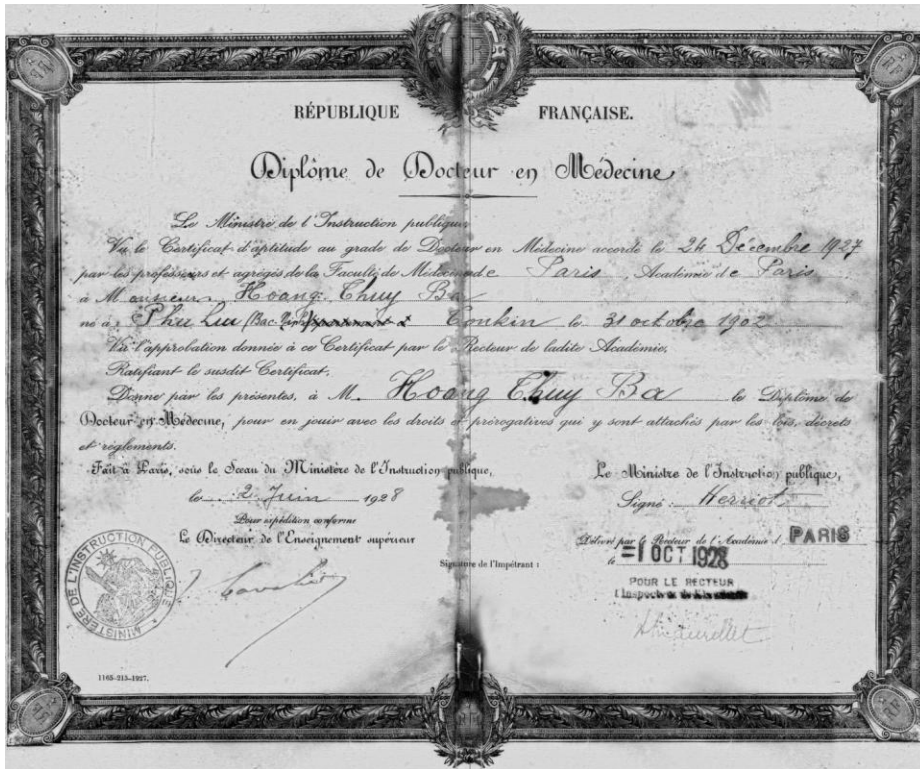 RÉPUBLIQUE FRANÇAISE.
Diplôme de Docteur en Médecine
Le Ministre de l'Instruction publique,
Vu le Certificat d'aptitude au grade de Docteur en Médecine accordé le 24 Décembre 1927
par les professeurs et agrégés de la Faculté de Médecine de Paris Académie de Paris
à Monsieur Hoang Thuy Ba
né à Phu Luu (Bac Ninh) Tonkin le 31 octobre 1902
Vu l'approbation donnée à ce Certificat par le Recteur de ladite Académie,
Ratifiant le susdit Certificat,
Donne par les présentes, à M. Hoang Thuy Ba le Diplôme de
Docteur en Médecine, pour en jouir avec les droits et prérogatives qui y sont attachés par les lois, décrets
et règlements.
Fait à Paris, sous le Sceau du Ministère de l'Instruction publique,
le 2 Juin 1928
Pour expédition conforme
Le Directeur de l'Enseignement supérieur
Le Ministre de l'Instruction publique,
Signé : Herriot
Délivré par le Recteur de l'Académie d PARIS
le =1 OCT 1928
POUR LE RECTEUR
l'Inspecteur de
Signature de l'Impétrant :
MINISTÈRE DE L'INSTRUCTION PUBLIQUE
1165-215-1927.